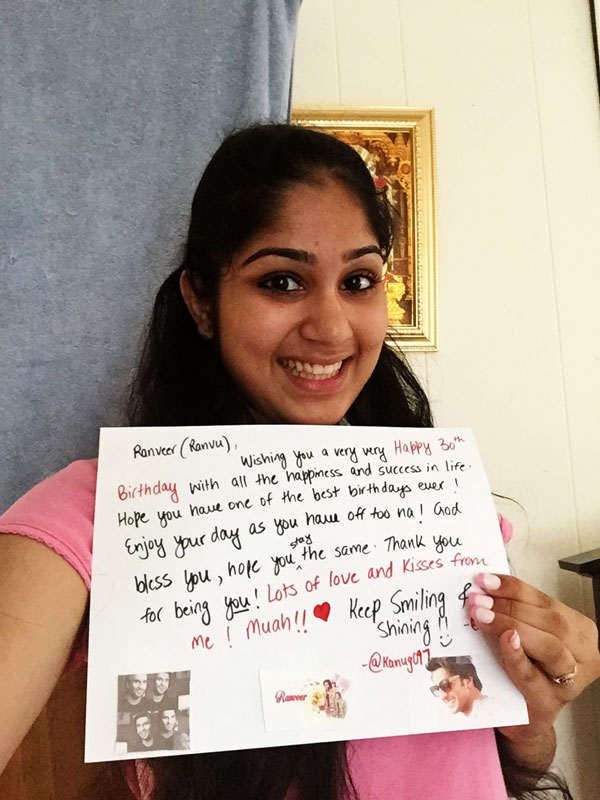 Ranveer (Ranvu),
Wishing you a very very Happy 30th
Birthday with all the happiness and success in life.
Hope you have one of the best birthdays ever!
Enjoy your day as you have off too na! God
bless you, hope you stay the same. Thank you
for being you! Lots of love and Kisses from
me! Muah!! ♥ Keep Smiling &
Shining!! :)
Ranveer